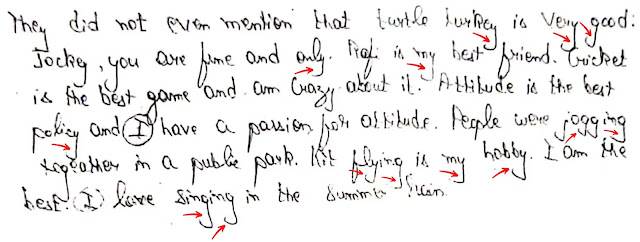 They did not even mention that turtle turkey is very good.
Jockey, you are fine and only. Rafi is my best friend. Cricket
is the best game and am Crazy about it. Attitude is the best
policy and I have a passion for attitude. People were jogging
togeather in a public park. Kit flying is my hobby. I am the
best. I love singing in the summer